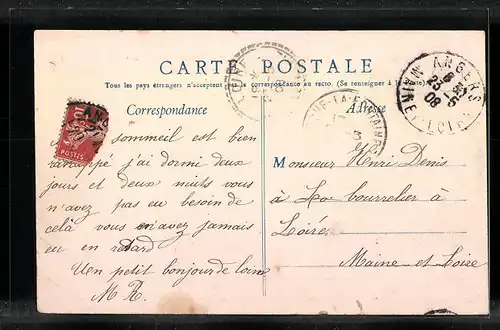 CARTE POSTALE
Tous les pays étrangers n'acceptent pas la correspondance au recto. (Se renseigner à
Correspondance
Adresse
sommeil est bien
j'ai dormi deux
jours et deux nuits vous
n'avez pas eu besoin de
celà vous n'avez jamais
eu en retard
Un petit bonjour de loin
M R.
Monsieur Henri Denis
à La bourrelier à
Loiré
Maine et Loire
ANGERS
MAINE-ET-LOIRE
08
10
POSTES